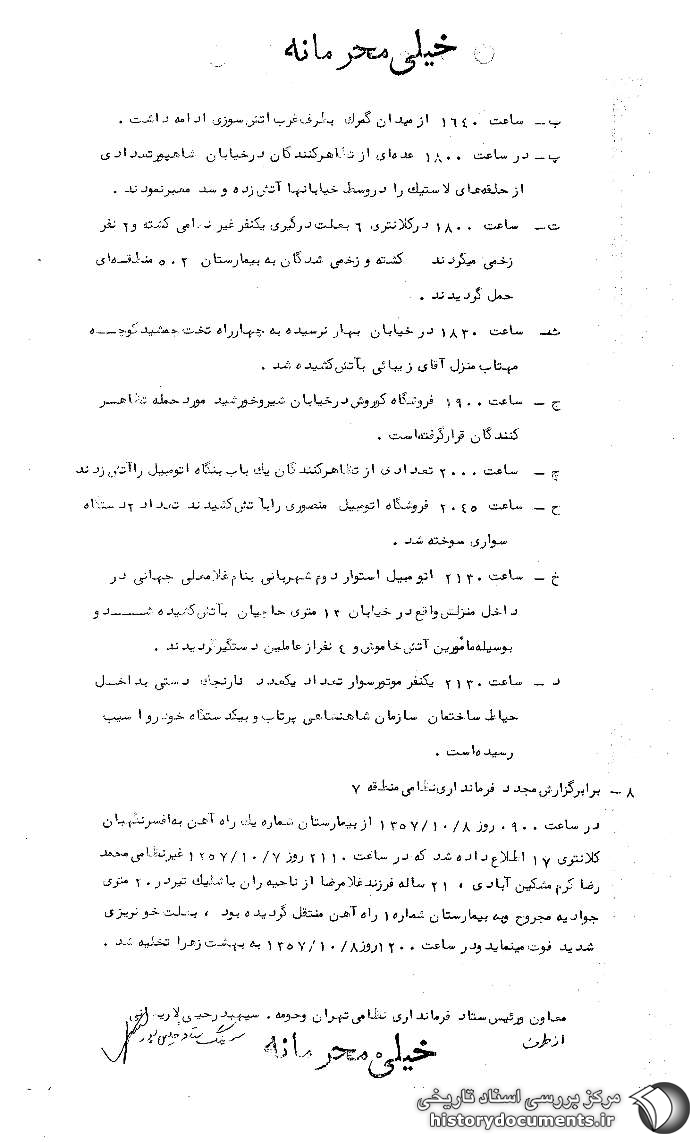 خیلی محرمانه
ب - ساعت ۱٦٤۰ از میدان گمرک بطرف غرب آتش سوزی ادامه داشت .
پ - در ساعت ۱۸۰۰ عده‌ای از تظاهرکنندگان در خیابان شاهپور تعدادی
از حلقه‌های لاستیک را در وسط خیابانها آتش زده و سد معبر نمودند .
ت - ساعت ۱۸۰۰ در کلانتری ٦ بعلت درگیری یکنفر غیر نظامی کشته و ۲ نفر
زخمی میگردند کشته و زخمی شدگان به بیمارستان ۵۰۲ منطقه‌ای
حمل گردیدند .
ث - ساعت ۱۸۳۰ در خیابان بهار نرسیده به چهارراه تخت جمشید کوچه
مهتاب منزل آقای زیبائی بآتش کشیده شد .
ج - ساعت ۱۹۰۰ فروشگاه کوروش در خیابان شیروخورشید مورد حمله تظاهر
کنندگان قرار گرفته‌است .
چ - ساعت ۲۰۰۰ تعدادی از تظاهرکنندگان یک باب بنگاه اتومبیل را آتش زدند
ح - ساعت ۲۰٤۵ فروشگاه اتومبیل منصوری را بآتش کشیدند تعداد ۲ دستگاه
سواری سوخته شد .
خ - ساعت ۲۱۳۰ اتومبیل استوار دوم شهربانی بنام غلامعلی جهانی در
داخل منزلش واقع در خیابان ۱۲ متری حاجیان بآتش کشیده شد و
بوسیله مأمورین آتش خاموش و ٤ نفر از عاملین دستگیر گردیدند .
د - ساعت ۲۱۳۰ یکنفر موتورسوار تعداد یکعدد نارنجک دستی بداخل
حیاط ساختمان سازمان شاهنشاهی پرتاب و بیکدستگاه خودرو آسیب
رسیده‌است .
۸ - برابر گزارش مجدد فرمانداری نظامی منطقه ۷
در ساعت ۰۹۰۰ روز ۱۳۵۷/۱۰/۸ از بیمارستان شماره یک راه آهن به افسر نگهبان
کلانتری ۱۷ اطلاع داده شد که در ساعت ۲۱۱۰ روز ۱۳۵۷/۱۰/۷ غیرنظامی محمد
رضا کرم مشکین آبادی ، ۲۱ ساله فرزند غلامرضا از ناحیه ران با شلیک تیر در ۲۰ متری
جوادیه مجروح و به بیمارستان شماره ۱ راه آهن منتقل گردیده بود ، بعلت خونریزی
شدید فوت مینماید و در ساعت ۱۲۰۰ روز ۱۳۵۷/۱۰/۸ به بهشت زهرا تخلیه شد .
معاون و رئیس ستاد فرمانداری نظامی تهران و حومه . سپهبد رحیمی لاریجانی
از طرف سرهنگ ستاد
خیلی محرمانه
مرکز بررسی اسناد تاریخی
historydocuments.ir